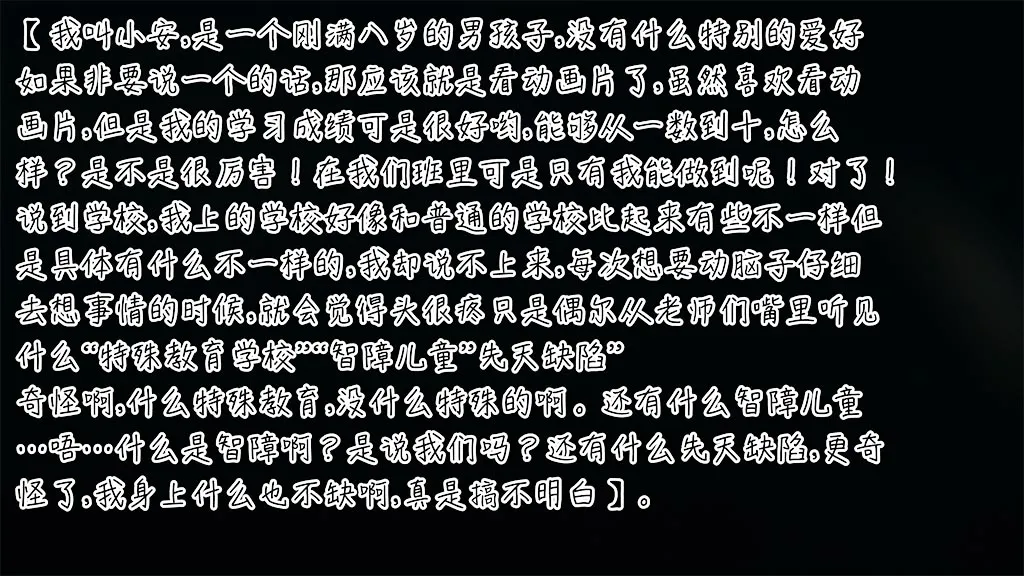 【 我叫小安,是一个刚满八岁的男孩子,没有什么特别的爱好
如果非要说一个的话,那应该就是看动画片了,虽然喜欢看动
画片,但是我的学习成绩可是很好哟,能够从一数到十,怎么
样？是不是很厉害！在我们班里可是只有我能做到呢！对了！
说到学校,我上的学校好像和普通的学校比起来有些不一样但
是具体有什么不一样的,我却说不上来,每次想要动脑子仔细
去想事情的时候,就会觉得头很疼只是偶尔从老师们嘴里听见
什么“特殊教育学校”“智障儿童”先天缺陷”
奇怪啊,什么特殊教育,没什么特殊的啊。还有什么智障儿童
…唔…什么是智障啊？是说我们吗？还有什么先天缺陷,更奇
怪了,我身上什么也不缺啊,真是搞不明白 】。